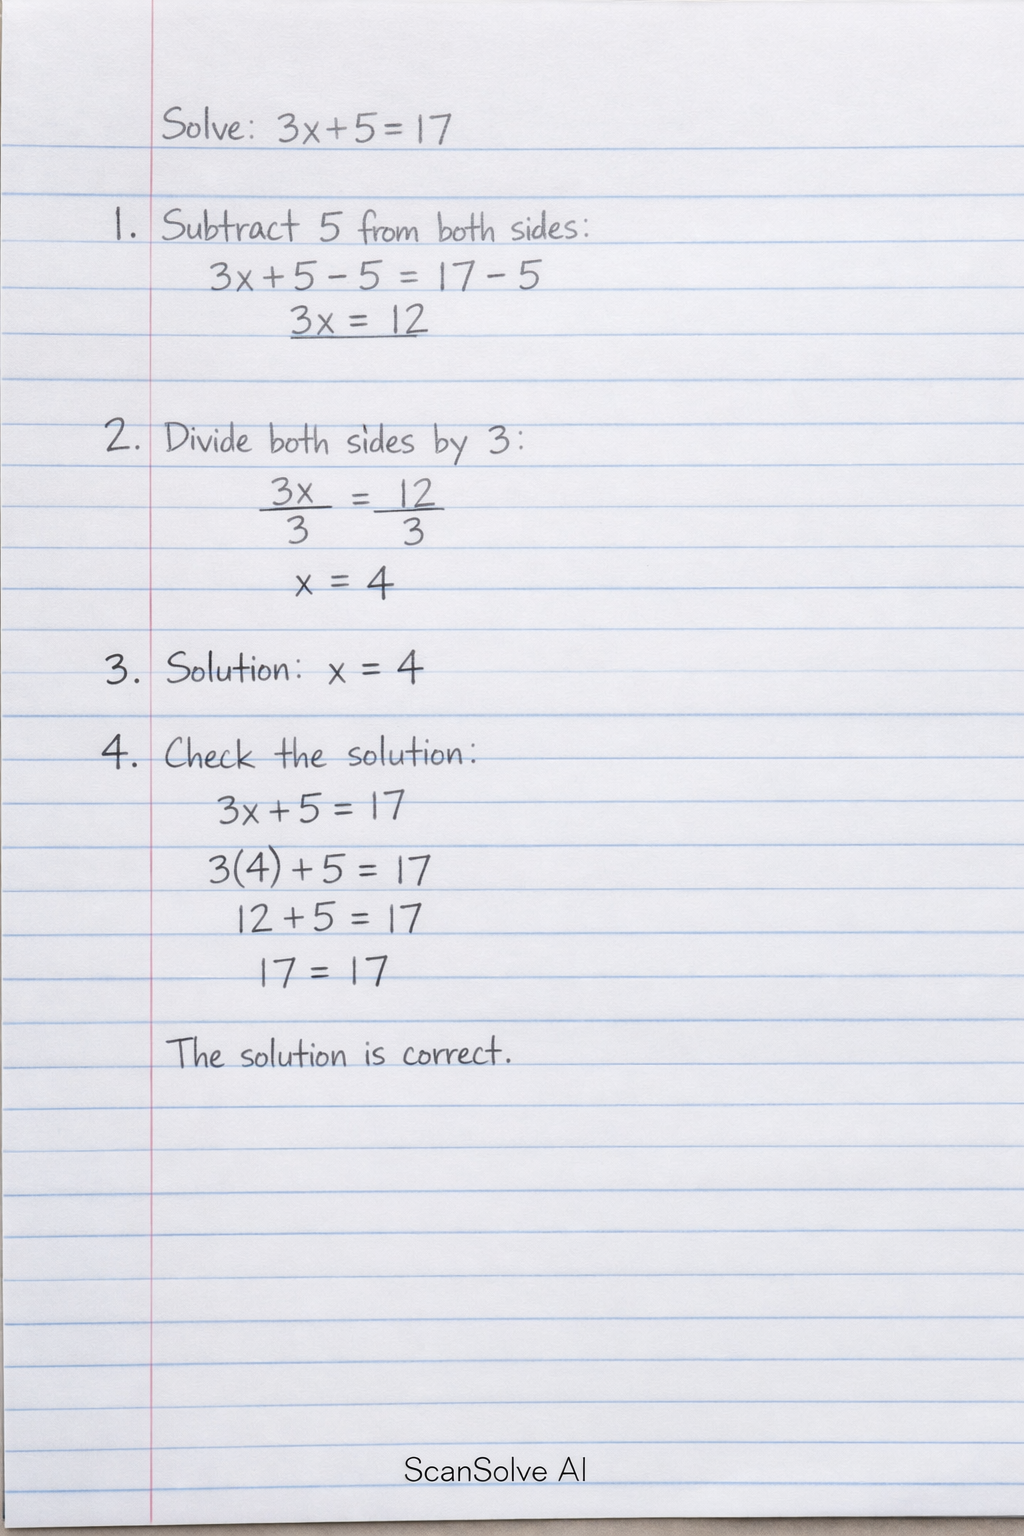 Solve: 3x+5=17
1. Subtract 5 from both sides:
3x+5-5 = 17-5
3x = 12
2. Divide both sides by 3:
3x/3 = 12/3
x = 4
3. Solution: x = 4
4. Check the solution:
3x+5 = 17
3(4)+5 = 17
12+5 = 17
17 = 17
The solution is correct.
ScanSolve AI